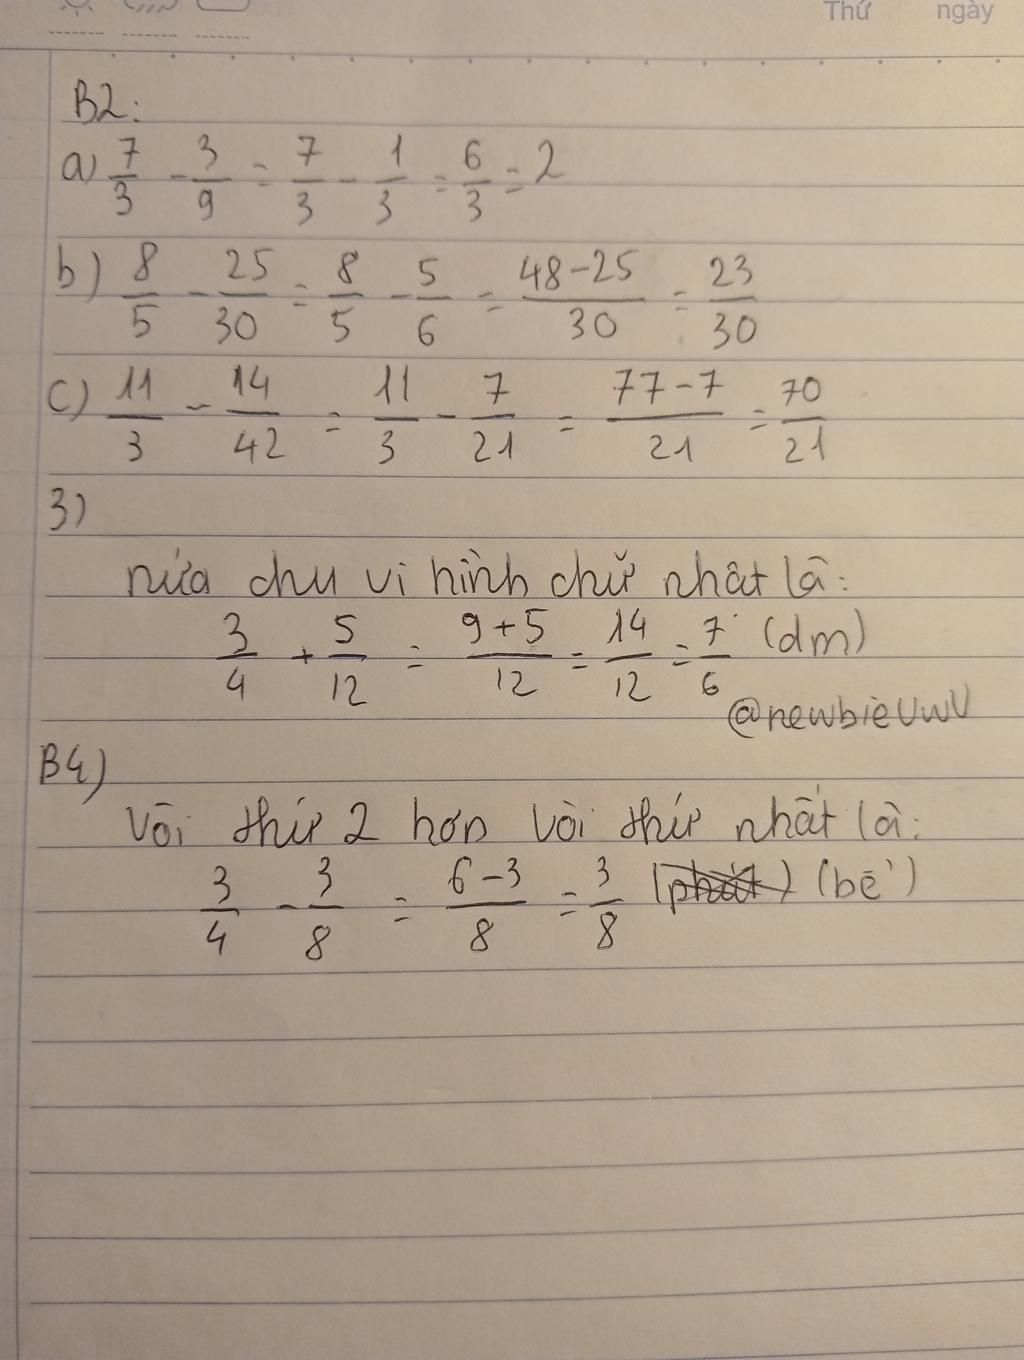 Thứ ngày
B2:
a) 7/3 - 3/9 = 7/3 - 1/3 = 6/3 = 2
b) 8/5 - 25/30 = 8/5 - 5/6 = (48-25)/30 = 23/30
c) 11/3 - 14/42 = 11/3 - 7/21 = (77-7)/21 = 70/21
3)
nửa chu vi hình chữ nhật là:
3/4 + 5/12 = (9+5)/12 = 14/12 = 7/6 (dm)
@newbieUwU
B4)
Vòi thứ 2 hơn vòi thứ nhất là:
3/4 - 3/8 = (6-3)/8 = 3/8 (phút) (bể)